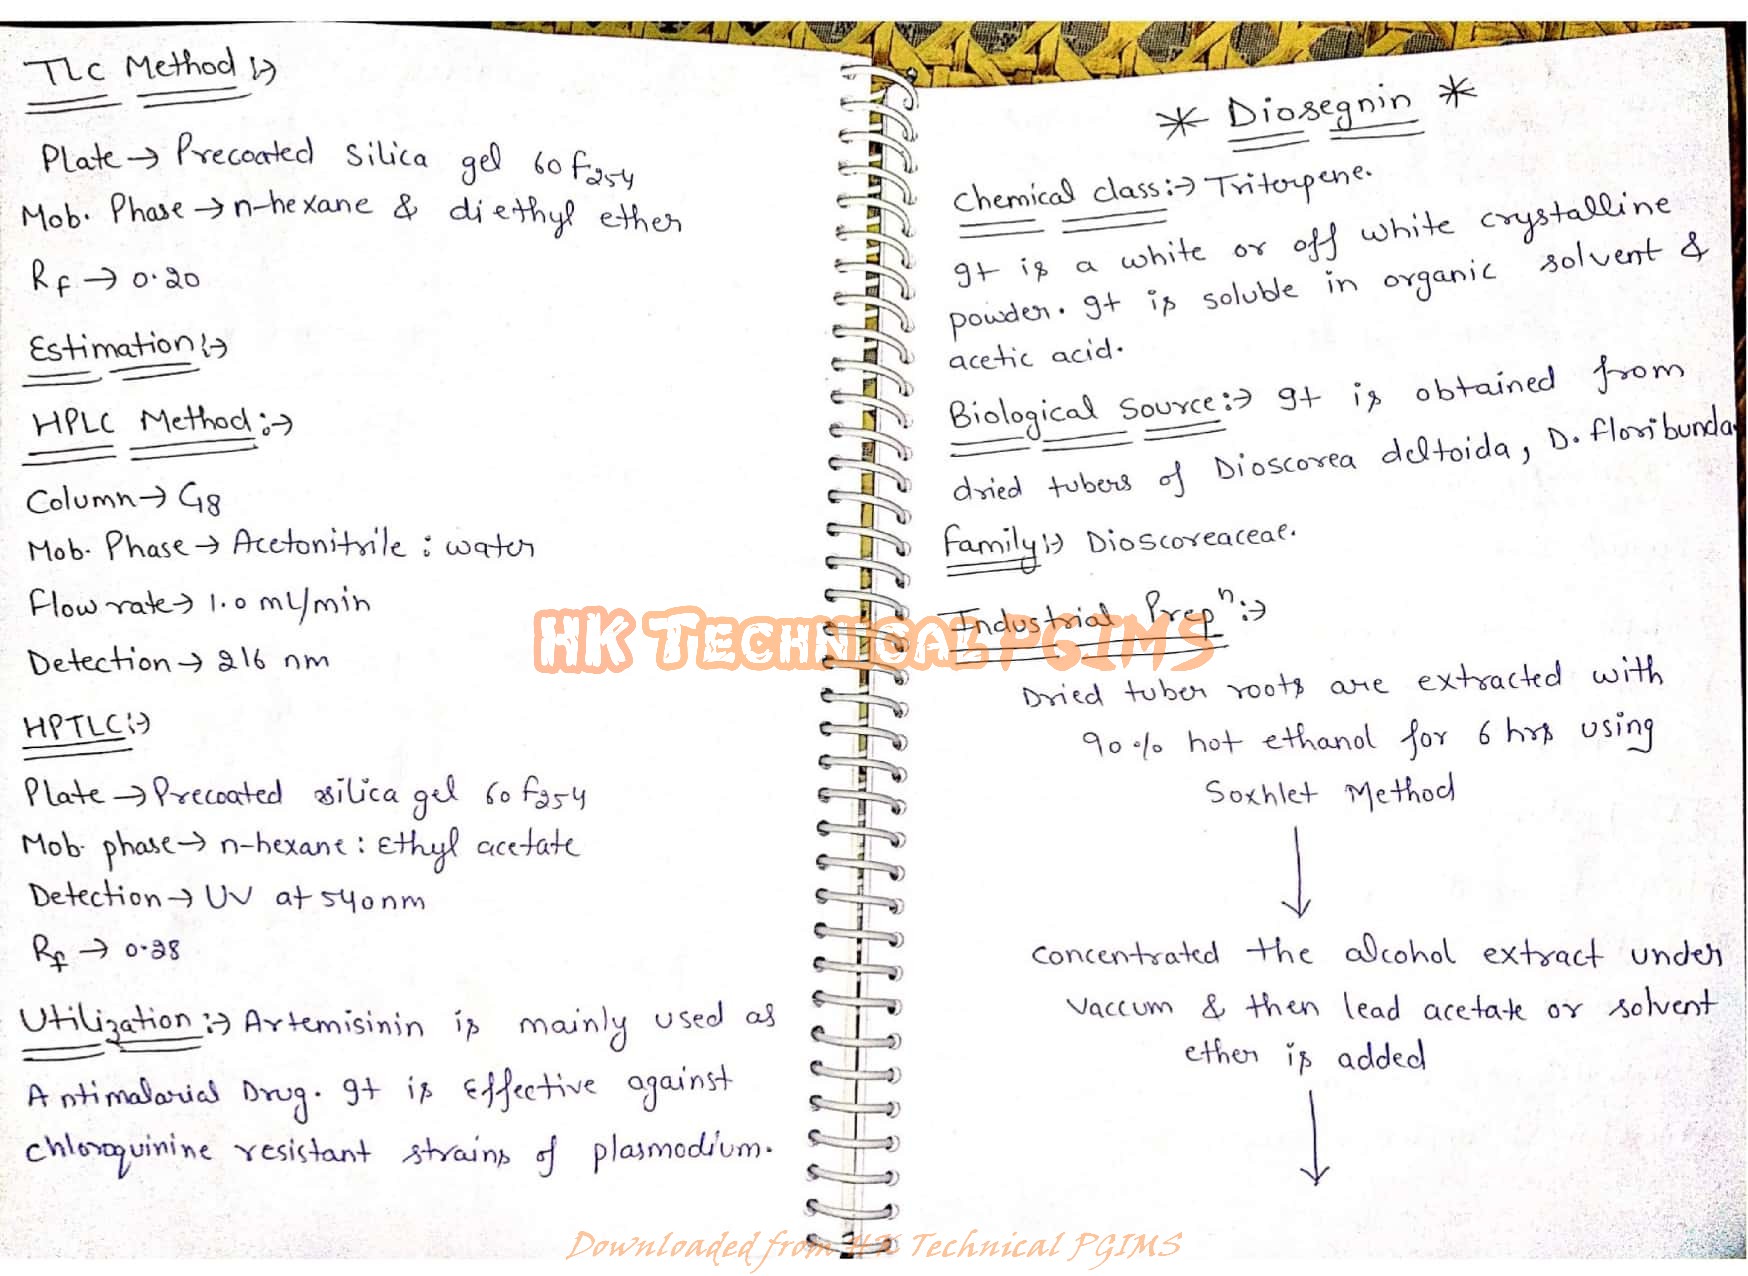 TLC Method :→
Plate → Precoated Silica gel 60 F254
Mob. Phase → n-hexane & diethyl ether
Rf → 0.20
Estimation :→
HPLC Method :→
Column → C18
Mob. Phase → Acetonitrile : water
Flow rate → 1.0 ml/min
Detection → 216 nm
HPTLC :→
Plate → Precoated silica gel 60 F254
Mob. phase → n-hexane : Ethyl acetate
Detection → UV at 540nm
Rf → 0.38
Utilization :→ Artemisinin is mainly used as
Antimalarial Drug. It is Effective against
chloroquinine resistant strains of plasmodium.
* Diosegnin *
Chemical class :→ Triterpene.
It is a white or off white crystalline
powder. It is soluble in organic solvent &
acetic acid.
Biological Source :→ It is obtained from
dried tubers of Dioscorea deltoida, D. floribunda.
Family :→ Dioscoreaceae.
Industrial Prepn :→
Dried tuber roots are extracted with
90% hot ethanol for 6 hrs using
Soxhlet Method
↓
Concentrated the alcohol extract under
Vaccum & then lead acetate or solvent
ether is added
↓
HK Technical PGIMS
Downloaded from HK Technical PGIMS